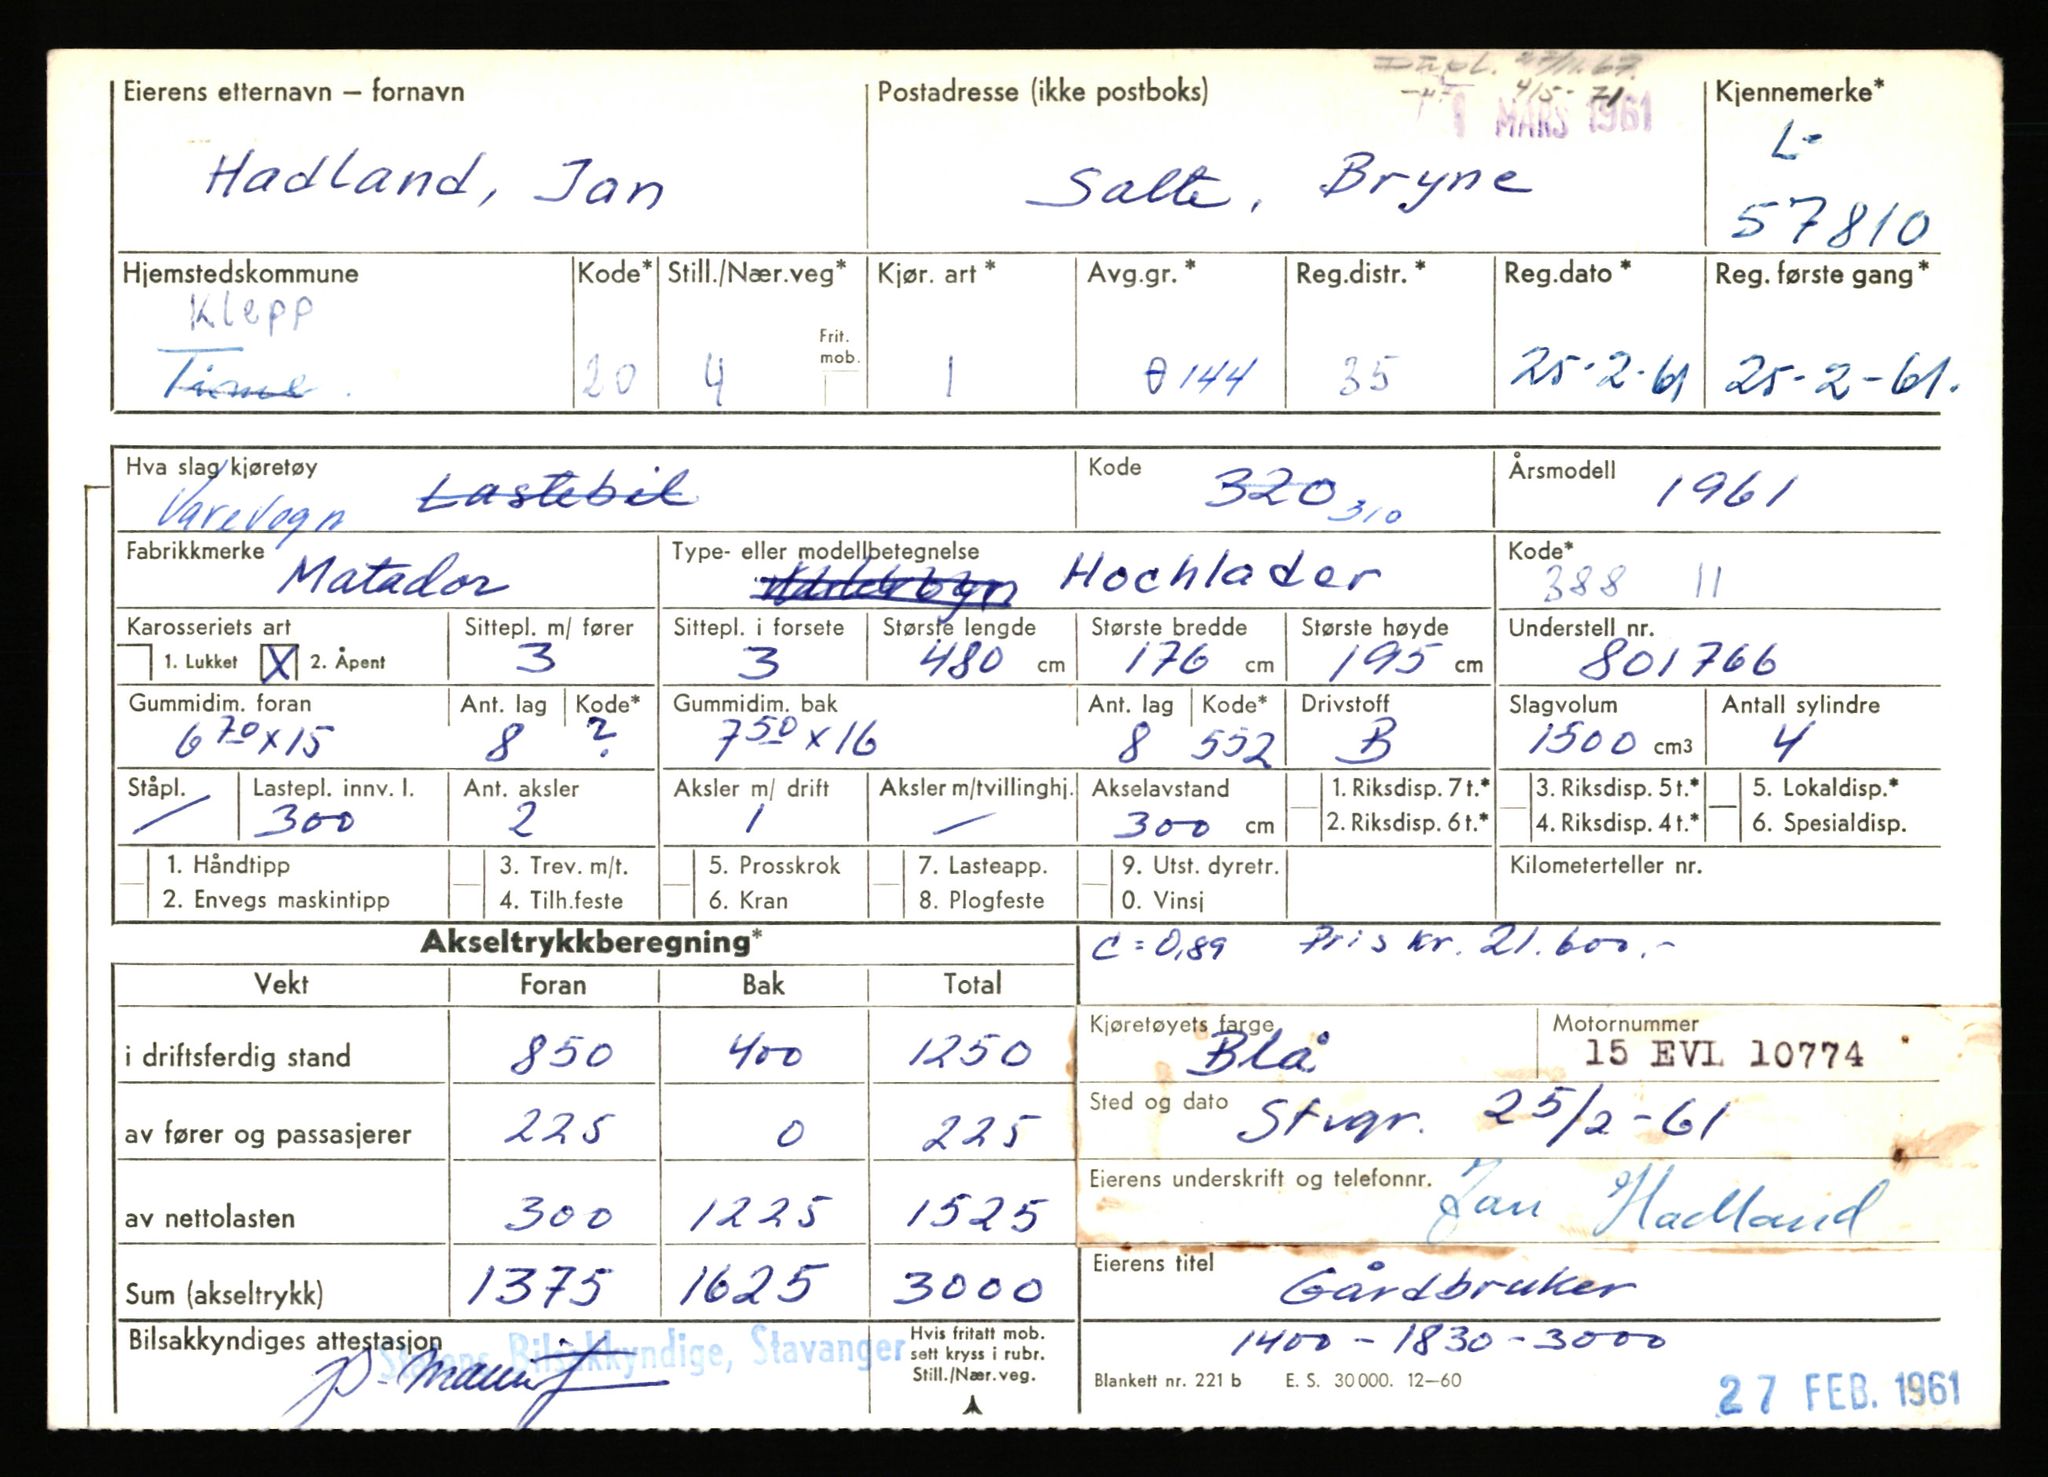 Dupl. 27/11.67.
4/5-71
MARS 1961
Eierens etternavn – fornavn Postadresse (ikke postboks) Kjennemerke*
Hadland, Jan Salte, Bryne L-
57810
Hjemstedskommune Kode* Still./Nær.veg* Kjør. art* Avg.gr.* Reg.distr.* Reg.dato* Reg. første gang*
Klepp
Frit. mob.
Time 20 4 1 144 35 25-2-61 25-2-61.
Hva slag kjøretøy Kode Årsmodell
Varevogn Lastebil 320 310 1961
Fabrikkmerke Type- eller modellbetegnelse Kode*
Matador Hochlader 388 11
Karosseriets art Sittepl. m/ fører Sittepl. i forsete Største lengde Største bredde Største høyde Understell nr.
1. Lukket X 2. Åpent 3 3 480 cm 176 cm 195 cm 801766
Gummidim. foran Ant. lag Kode* Gummidim. bak Ant. lag Kode* Drivstoff Slagvolum Antall sylindre
6 70 x 15 8 ? 7 50 x 16 8 552 B 1500 cm3 4
Ståpl. Lastepl. innv. l. Ant. aksler Aksler m/ drift Aksler m/tvillinghj. Akselavstand 1. Riksdisp. 7 t.* 3. Riksdisp. 5 t.* 5. Lokaldisp.*
/ 300 2 1 — 300 cm 2. Riksdisp. 6 t.* 4. Riksdisp. 4 t.* 6. Spesialdisp.
1. Håndtipp 3. Trev. m/t. 5. Prosskrok 7. Lasteapp. 9. Utst. dyretr. Kilometerteller nr.
2. Envegs maskintipp 4. Tilh.feste 6. Kran 8. Plogfeste 0. Vinsj
Akseltrykkberegning* C = 0,89 Pris kr. 21.600.-
Vekt Foran Bak Total
Kjøretøyets farge Motornummer
i driftsferdig stand 850 400 1250 Blå 15 EVL 10774
Sted og dato Stvgr. 25/2-61
av fører og passasjerer 225 0 225
Eierens underskrift og telefonnr. Jan Hadland
av nettolasten 300 1225 1525
Eierens titel Gårdbruker
Sum (akseltrykk) 1375 1625 3000
Bilsakkyndiges attestasjon Hvis fritatt mob. 1400 - 1830 - 3000
Statens Bilsakkyndige, Stavanger sett kryss i rubr.
Still./Nær.veg. Blankett nr. 221 b E. S. 30 000. 12–60
27 FEB. 1961